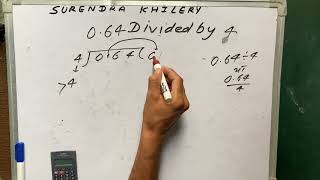 SURENDRA KHILERY
0.64 Divided by 4
4)0.64(0
>4
0.64÷4
या
0.64
4